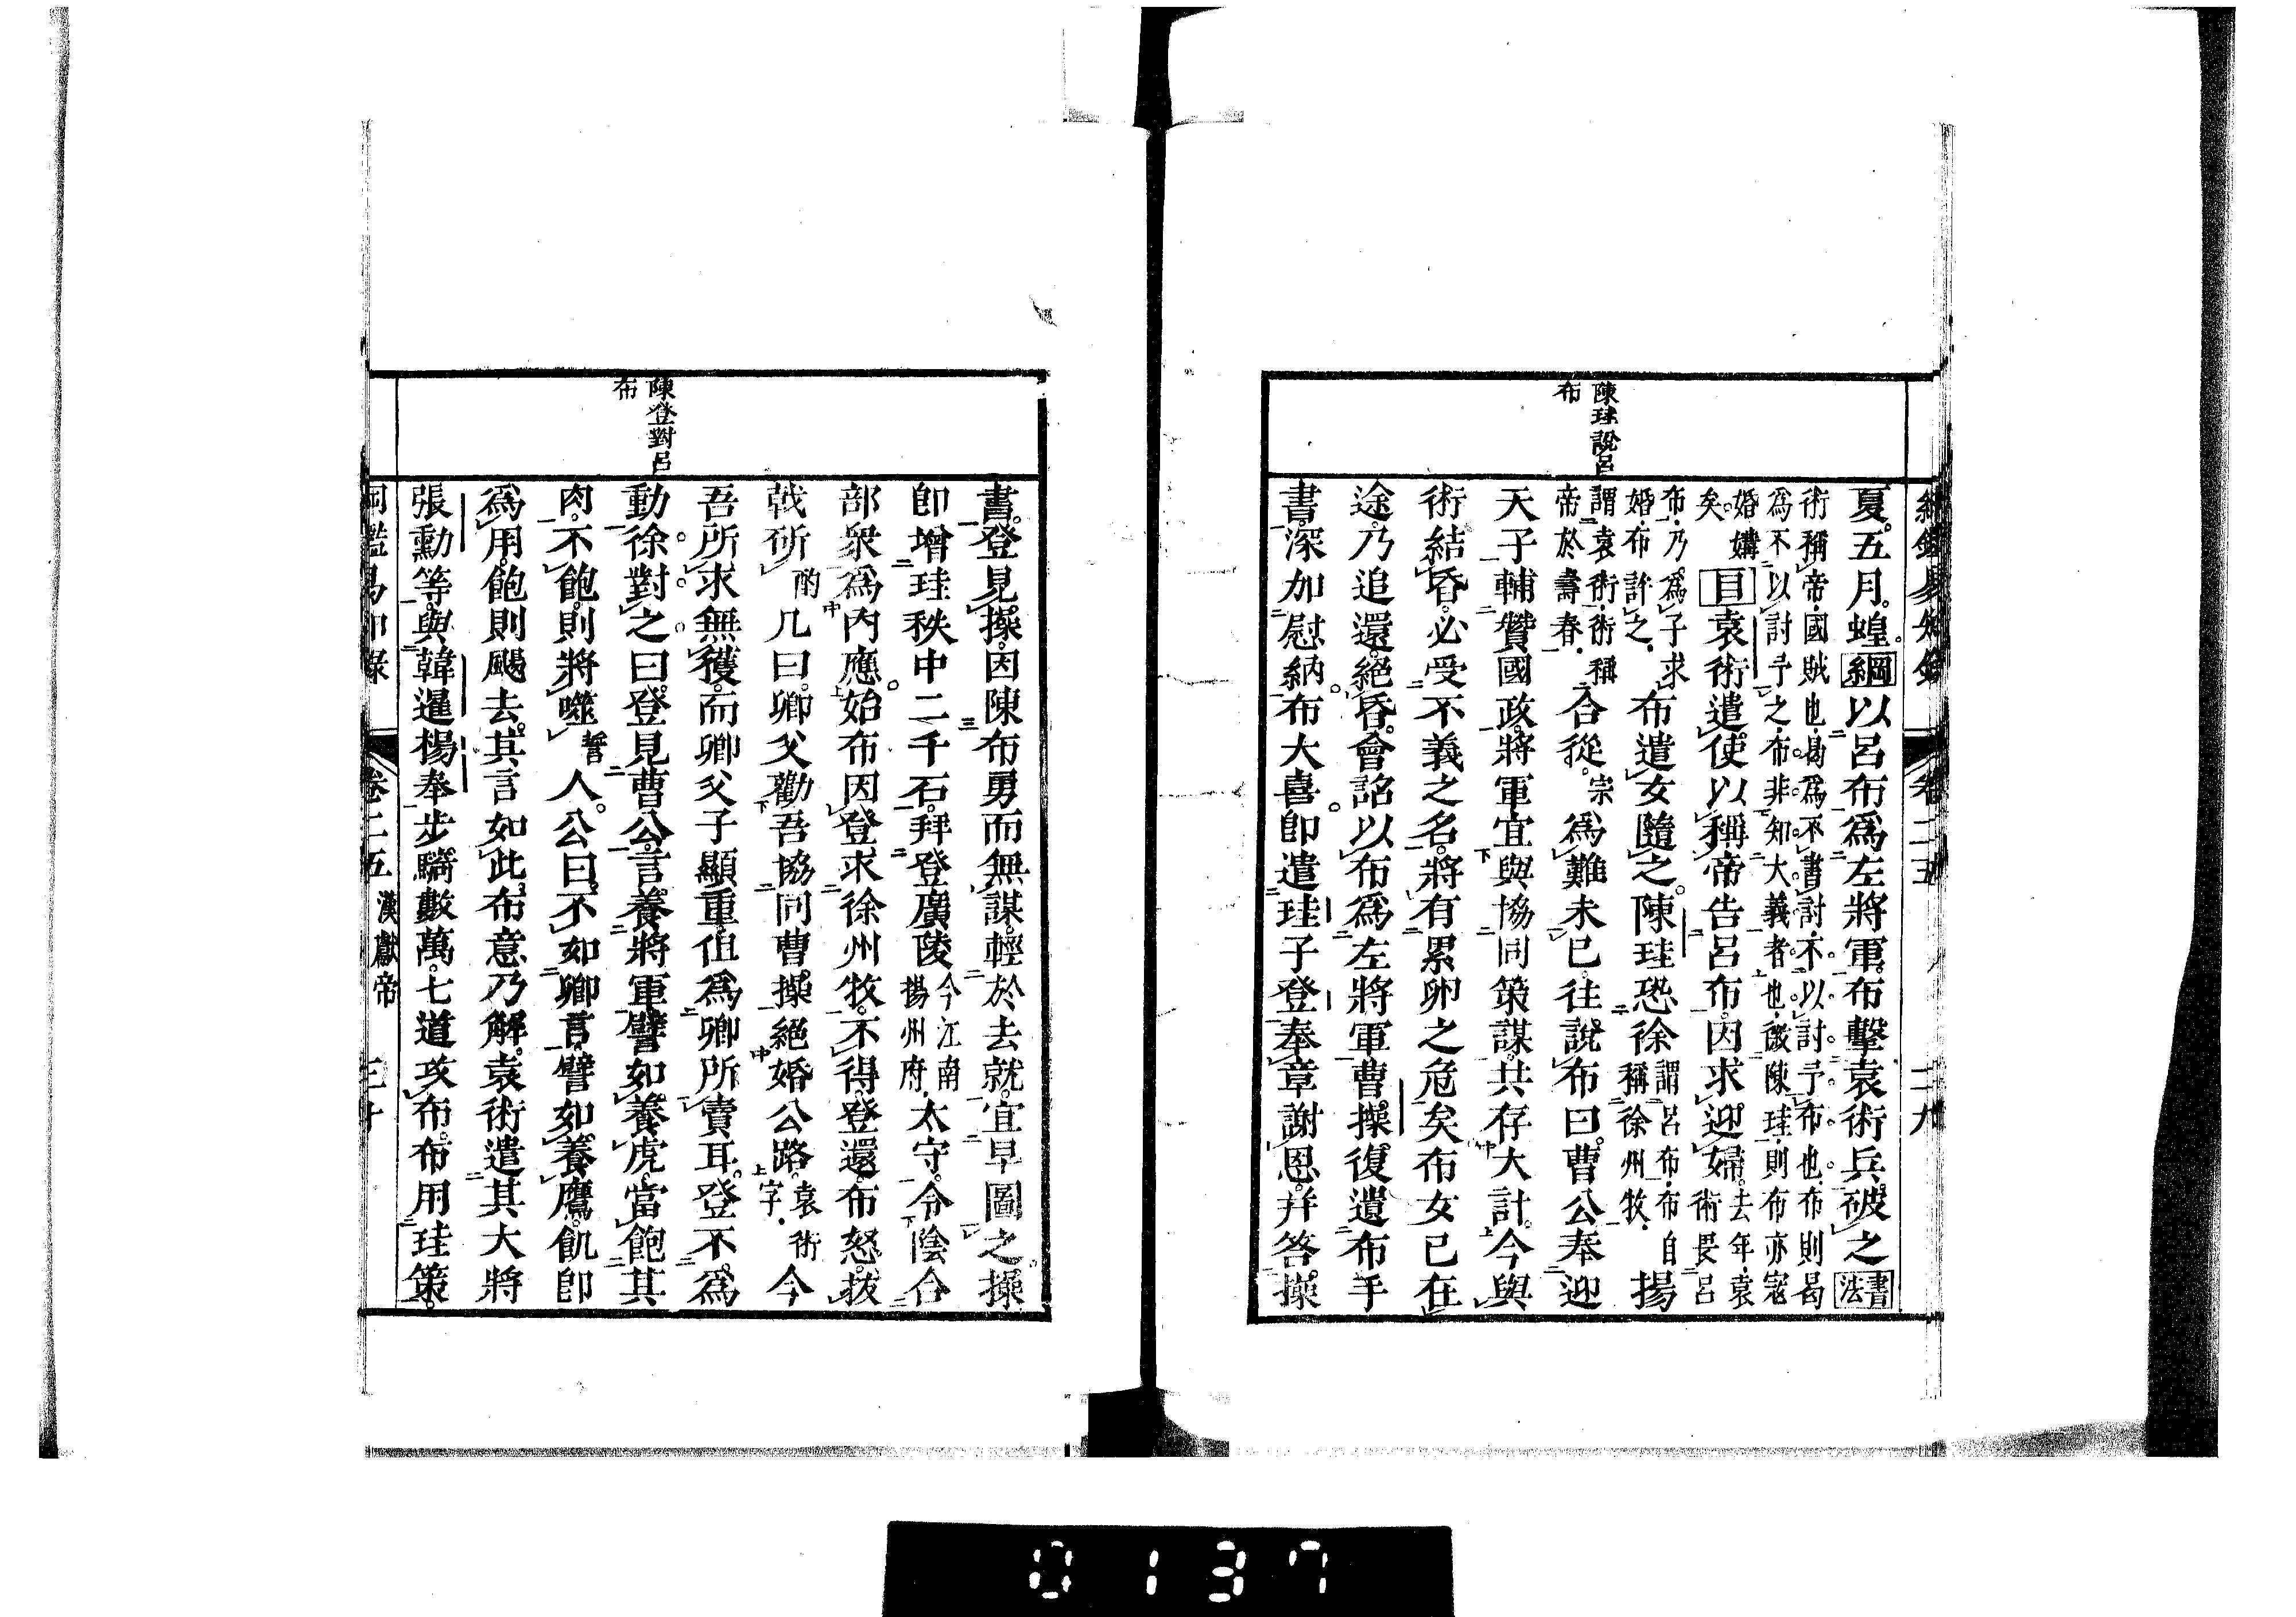 綱鑑易知錄 卷二五 二九
陳珪說呂
布
夏。五月。蝗。綱以呂布爲左將軍。布擊袁術兵。破之書法
術稱帝。國賊也。曷爲不書討。不以討予布也。布則曷
爲不以討予之。布非知大義者也。微陳珪。則布亦寇
婚媾矣。目袁術遣使以稱帝告呂布。因求迎婦。去年袁術畏呂
布。乃爲子求婚。布許之。布遣女隨之。陳珪恐徐謂呂布。布自稱徐州牧。揚
謂袁術。術稱帝於壽春。合從。宗爲難未已。往說布曰。曹公奉迎
天子輔贊國政。將軍宜與協同策謀。共存大計。今與
術結昏。必受不義之名。將有累卵之危矣。布女已在
途。乃追還。絕昏。會詔以布爲左將軍。曹操復遺布手
書。深加慰納。布大喜。卽遣珪子登奉章謝恩。幷答操
陳登對呂
布
書。登見操。因陳布勇而無謀。輕於去就。宜早圖之。操
卽增珪秩中二千石。拜登廣陵今江南揚州府。太守。令陰合
部衆爲內應。始布因登求徐州牧。不得。登還。布怒。拔
戟斫酌几曰。卿父勸吾協同曹操。絕婚公路。袁術字。今
吾所求無獲。而卿父子顯重。但爲卿所賣耳。登不爲
動。徐對之曰。登見曹公。言養將軍。譬如養虎。當飽其
肉。不飽。則將噬誓人。公曰。不如卿言。譬如養鷹。飢卽
爲用。飽則颺去。其言如此。布意乃解。袁術遣其大將
張勳等。與韓暹楊奉步騎數萬。七道攻布。布用珪策。
綱鑑易知錄 卷二五 漢獻帝 三十
0137